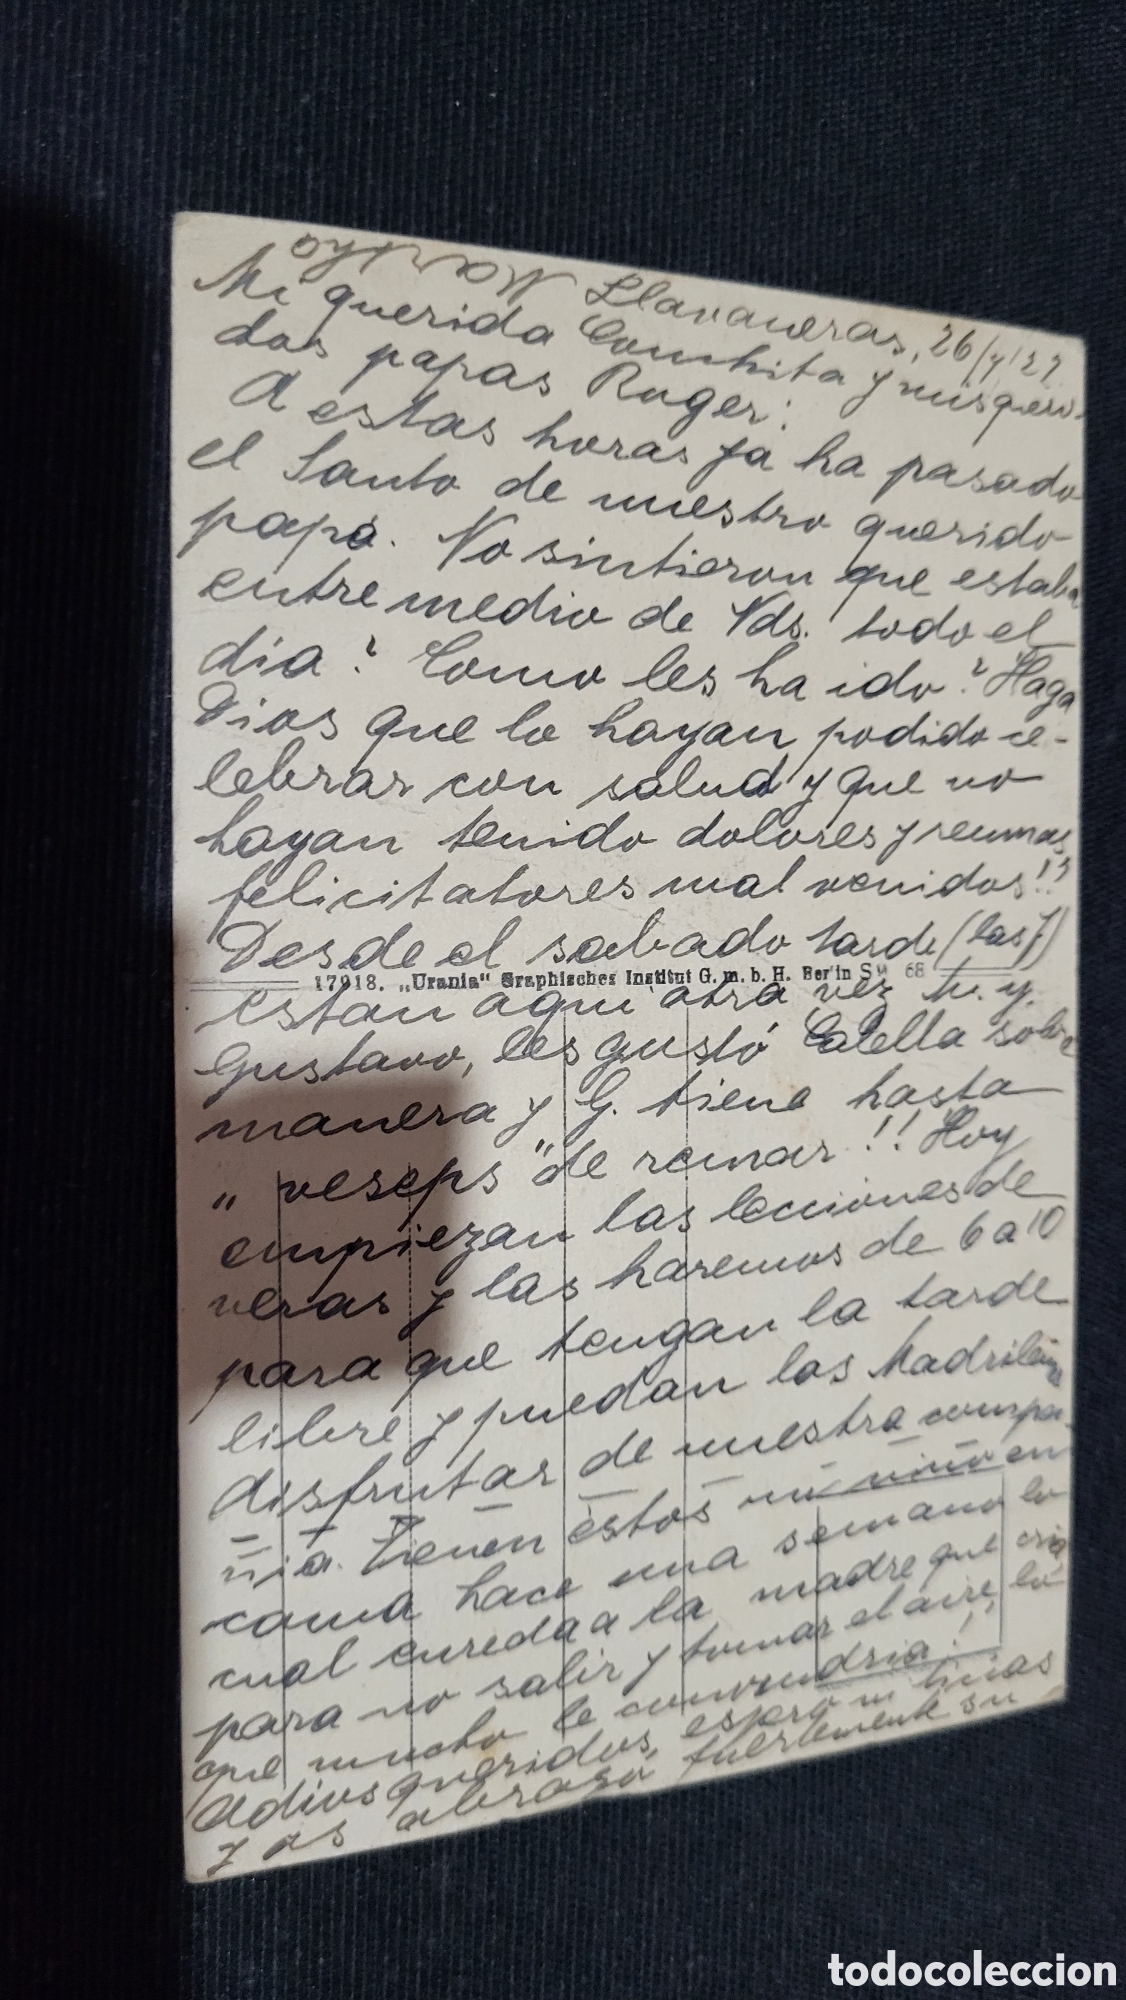 Llavaneras, 26/
Mi querida Conchita y mis queri-
dos papas Roger:
A estas horas ya ha pasado
el Santo de nuestro querido
papá. No sintieron que estaba
entre medio de Vds. todo el
dia? Como les ha ido? Haga
Dios que lo hayan podido ce-
lebrar con salud y que no
hayan tenido dolores y reumas,
felicitatores mal venidos!!
Desde el sabado tarde (las 7)
17918. „Urania“ Graphisches Institut G. m. b. H. Berlin SW 68
estan aqui otra vez y
Gustavo, les gustó Calella sobre
manera y G. tiene hasta
" veseps" de remar!! Hoy
empiezan las lecciones de
veras y las haremos de 6 a 10
para que tengan la tarde
libre y puedan los Madrileños
disfrutar de nuestra compa-
ñia. Tienen estos un niño en
cama hace una semana lo
cual enreda a la madre que
para no salir y tomar el aire, lo
que mucho le convendria!
Adios queridos, espero noticias
y os abraza fuertemente su
todocoleccion